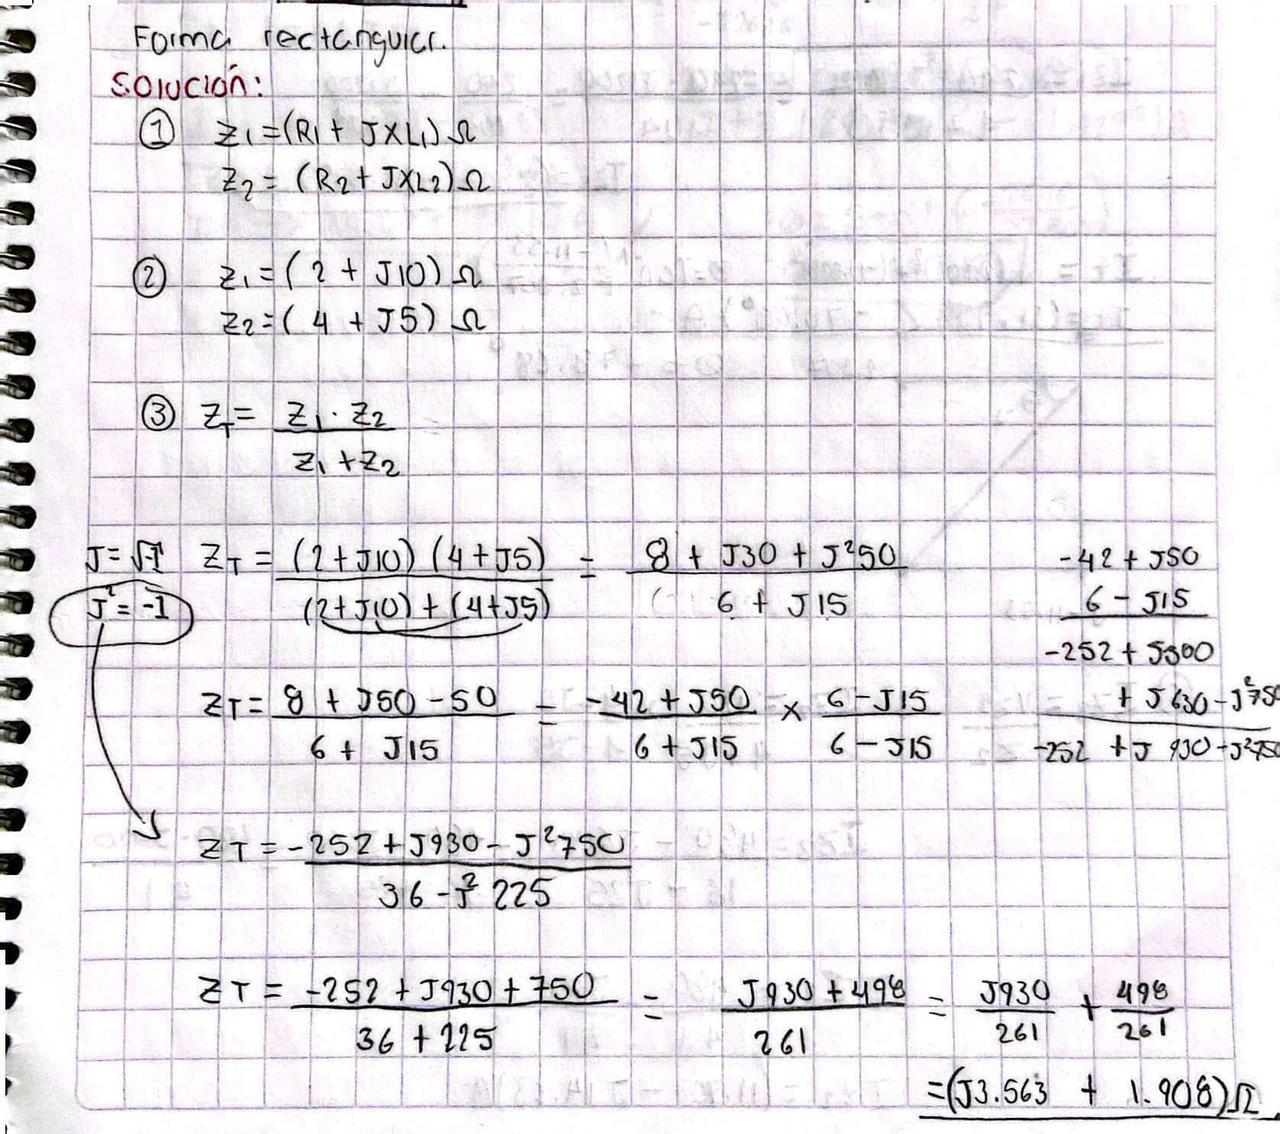 Forma rectangular.
Solución:
① Z1 = (R1 + JXL1) Ω
Z2 = (R2 + JXL2) Ω
② Z1 = (2 + J10) Ω
Z2 = (4 + J5) Ω
③ ZT = Z1 · Z2 / Z1 + Z2
J = √-1
J² = -1
ZT = (2 + J10) (4 + J5) / (2 + J10) + (4 + J5) = 8 + J30 + J²50 / 6 + J15
-42 + J50
6 - J15
-252 + J300
+ J630 - J²750
-252 + J 930 - J²750
ZT = 8 + J50 - 50 / 6 + J15 = -42 + J50 / 6 + J15 × 6 - J15 / 6 - J15
ZT = -252 + J930 - J²750 / 36 - J² 225
ZT = -252 + J930 + 750 / 36 + 225 = J930 + 498 / 261 = J930 / 261 + 498 / 261
= (J3.563 + 1.908) Ω